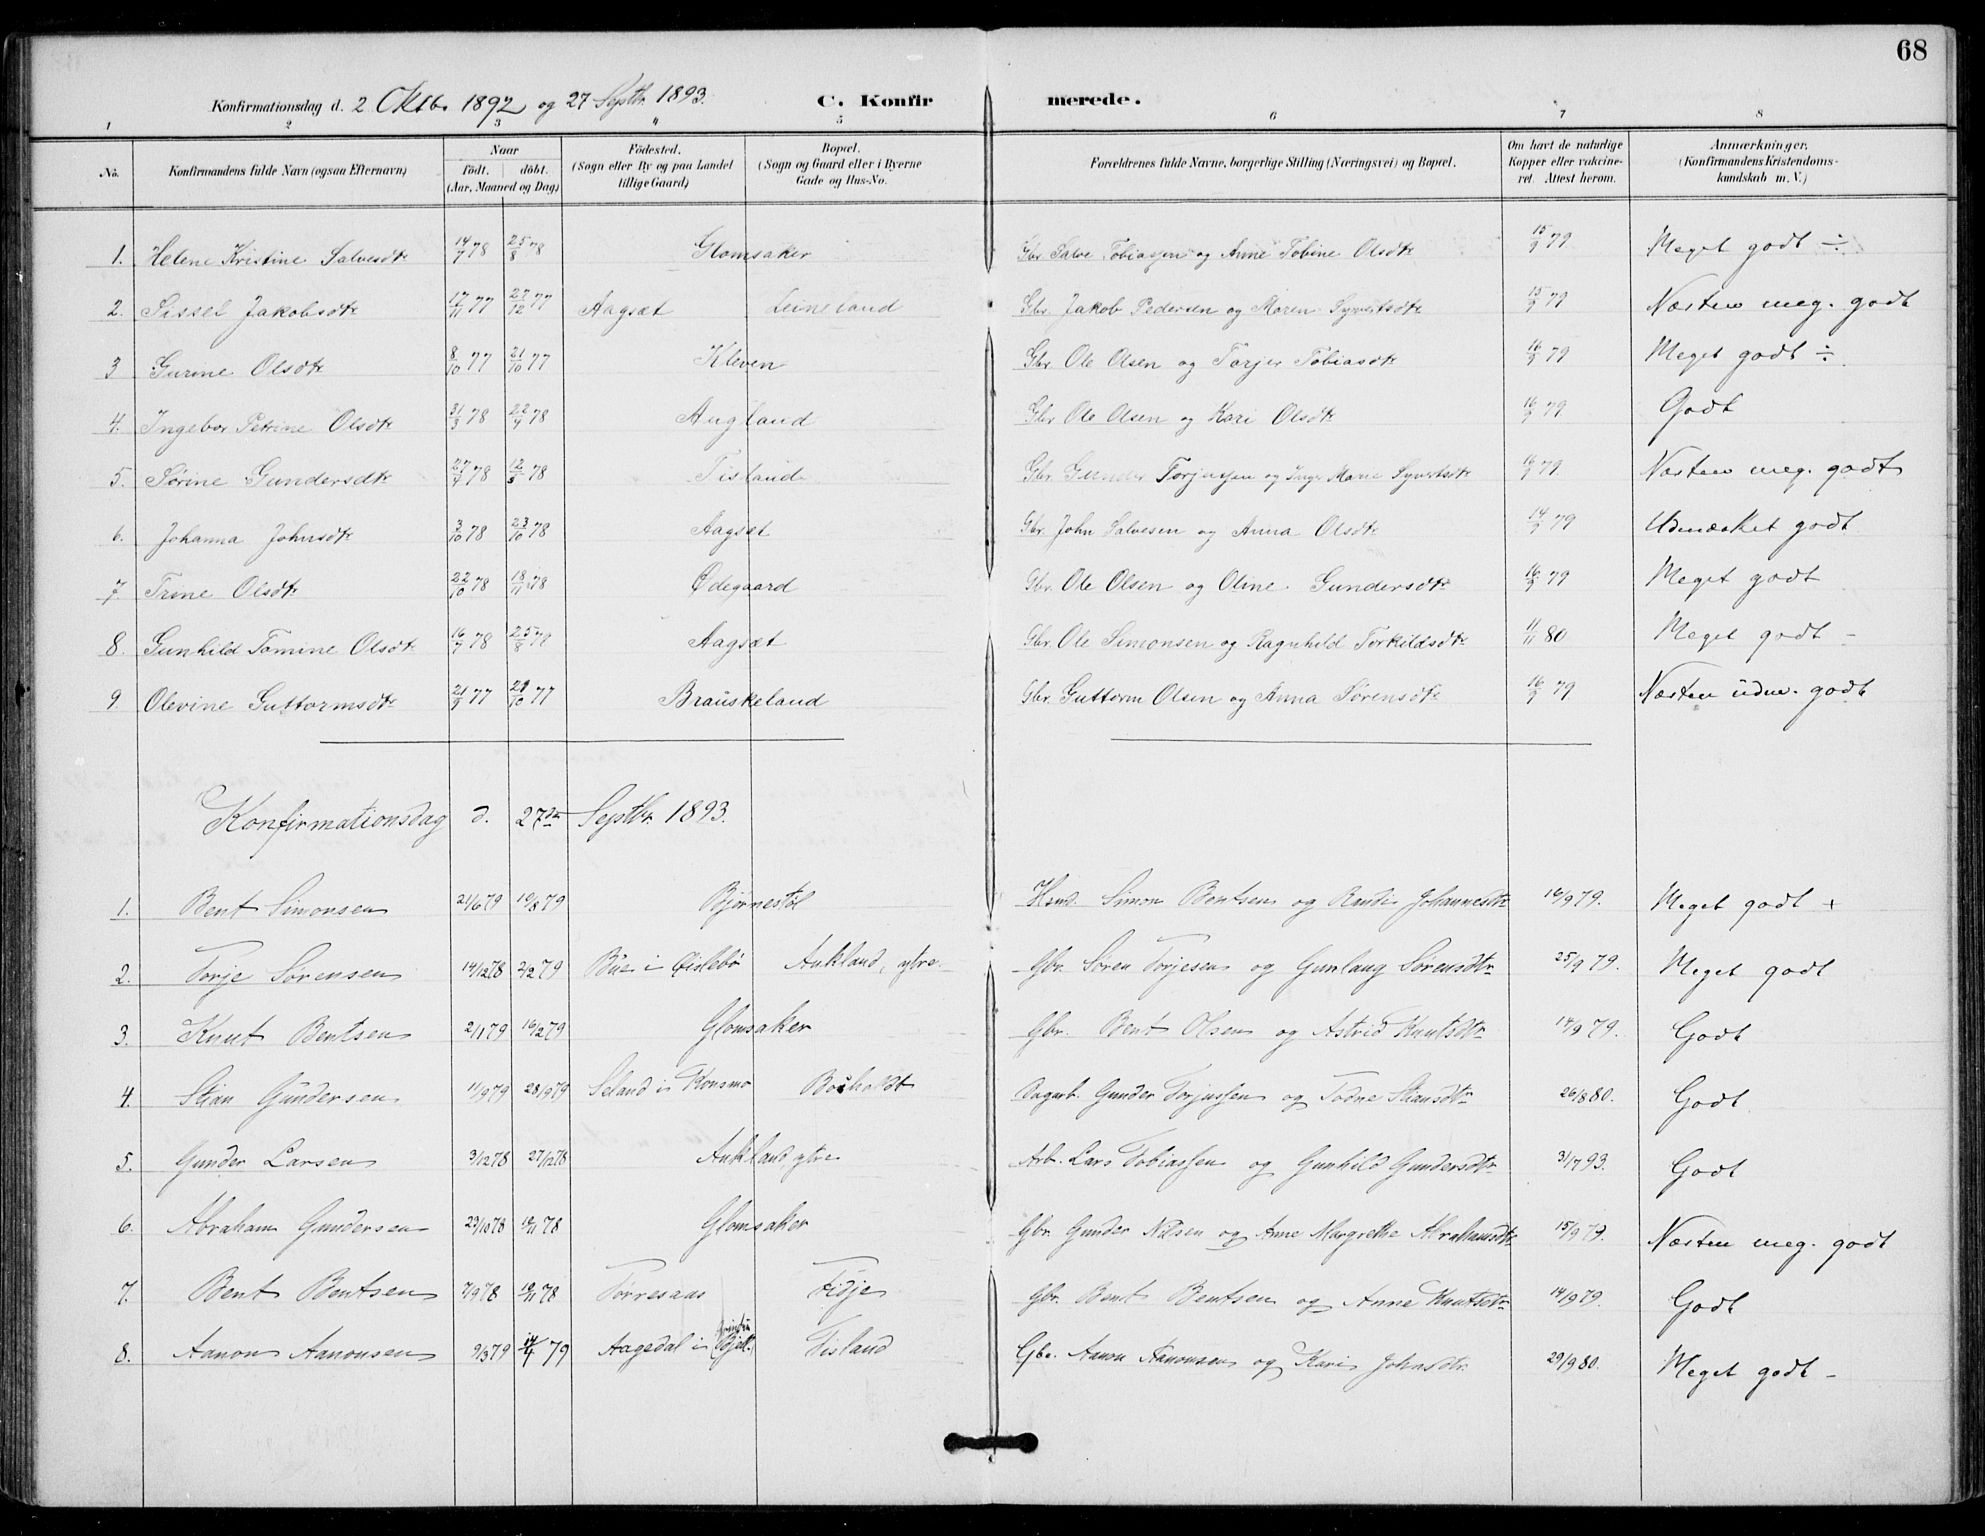 68
Konfirmationsdag d. 2 Oktb. 1892 og 27 Septbr. 1893. C. Konfir merede.
1 2 3 4 5 6 7 8
No. Konfirmandens fulde Navn (ogsaa Efternavn) Naar født. døbt. (Aar, Maaned og Dag) Födested. (Sogn eller By og paa Landet tillige Gaard) Bopæl. (Sogn og Gaard eller i Byerne Gade og Hus-No. Forældrenes fulde Navne, borgerlige Stilling (Næringsvei) og Bopæl. Om havt de naturlige Kopper eller vakcineret. Attest herom. Anmærkninger. (Konfirmandens Kristendomskundskab m. V.)
1. Helene Kristine Salvesdtr 14/7 78 25/8 78 Glomsaker Gbr. Salve Tobiassen og Anne Tobine Olsdtr 15/9 79 Meget godt ÷
2. Sissel Jakobsdtr 17/11 77 27/12 77 Aagsæt Leineland Gbr. Jakob Pedersen og Maren Syvertsdtr 15/9 79 Næsten meg. godt
3 Gurine Olsdtr 8/10 77 21/10 77 Kleven Gbr. Ole Olsen og Torjer Tobiasdtr 16/9 79 Meget godt ÷
4. Ingebor Petrine Olsdtr 31/3 78 22/4 78 Augland Gbr. Ole Olsen og Kari Olsdtr 16/9 79 Godt
5. Sørine Gundersdtr 27/4 78 12/5 78 Tisland Gbr. Gunder Torjussen og Inger Marie Syvertsdtr 16/9 79 Næsten meg. godt
6. Johanna Johnsdtr 3/10 78 23/10 78 Aagsæt Gbr. John Salvesen og Anna Olsdtr 14/9 79 Udmærket godt
7. Trine Olsdtr 22/10 78 18/11 78 Ødegaard Gbr. Ole Olsen og Oline Gundersdtr 16/9 79 Meget godt
8. Gunhild Tomine Olsdtr 16/7 78 25/8 78 Aagsæt Gbr. Ole Simonsen og Ragnhild Torkildsdtr 11/11 80 Meget godt -
9. Olevine Guttormsdtr 21/9 77 21/10 77 Brauskeland Gbr. Guttorm Olsen og Anna Sørensdtr 16/9 79 Næsten udm. godt
Konfirmationsdag d. 27de Septbr. 1893.
1. Bent Simonsen 21/6 79 10/8 79 Bjørnestøl Hsmd. Simon Bentsen og Randi Johannesdtr 16/9 79. Meget godt +
2. Torje Sørensen 14/12 78 2/2 79 Bue i Øislebø Aukland, ytre Gbr. Søren Torjesen og Gunlaug Sørensdtr 25/9 79. Meget godt
3. Knut Bentsen 2/1 79 16/2 79 Glomsaker Gbr. Bent Olsen og Astrid Knutsdtr 14/9 79. Godt
4. Stian Gundersen 11/9 79 28/9 79 Seland i Konsmo Boiholdt Dagarb. Gunder Torjussen og Todne Stiansdtr 26/8 80. Godt
5. Gunder Larsen 3/12 78 27/12 78 Aukland ytre Arb. Lars Tobiassen og Gunhild Gundersdtr 31/7 93. Godt
6. Abraham Gundersen 29/10 78 10/11 78 Glomsaker Gbr. Gunder Nilsen og Anne Margrethe Abrahamsdtr 15/9 79. Næsten meg. godt
7. Bent Bentsen 7/9 78 10/11 78 Torresaas Fidje Gbr. Bent Bentsen og Anne Knutsdtr 14/9 79. Godt
8. Aanon Aanonsen 9/3 79 14/4 79 Aagedal i Bjell. Tisland Gbr. Aanon Aanonsen og Kari Johnsdtr. 29/9 80. Meget godt -